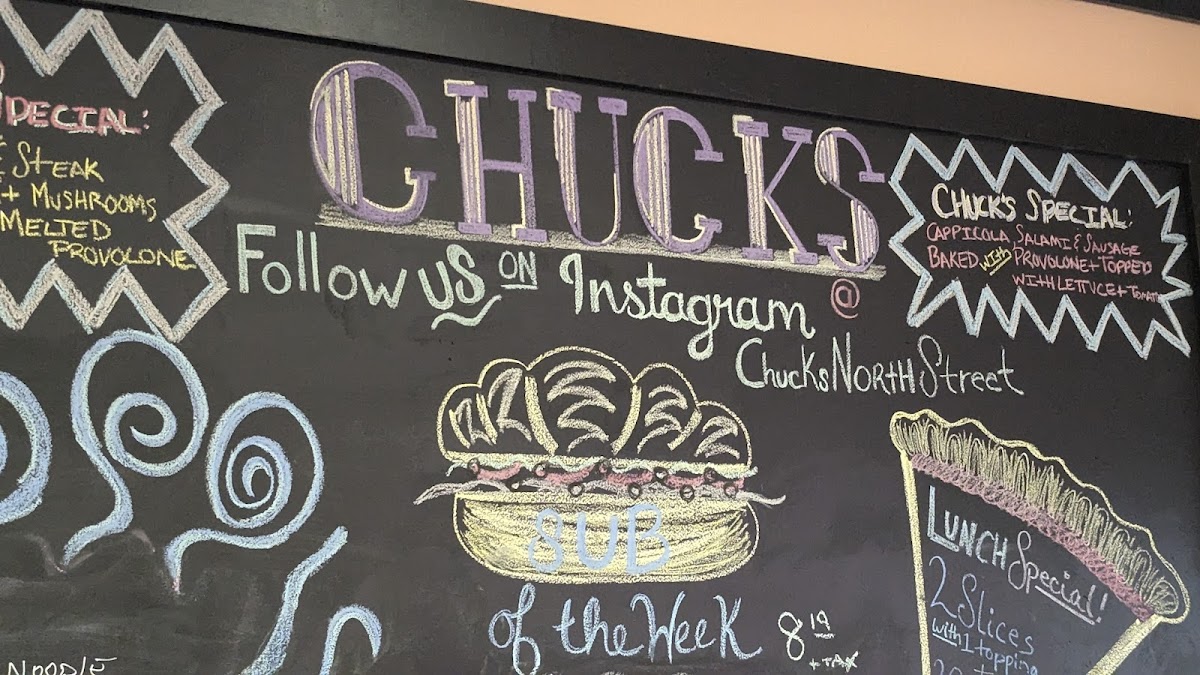 SPECIAL:
STEAK
+ MUSHROOMS
MELTED
PROVOLONE
CHUCKS
Follow us ON Instagram @
ChucksNorthStreet
CHUCK'S SPECIAL:
CAPPICOLA, SALAMI & SAUSAGE
BAKED with PROVOLONE + TOPPED
WITH LETTUCE + TOMATO
SUB
of the Week 8 19
+ TAX
LUNCH Special!
2 Slices
with 1 topping
NOODLE